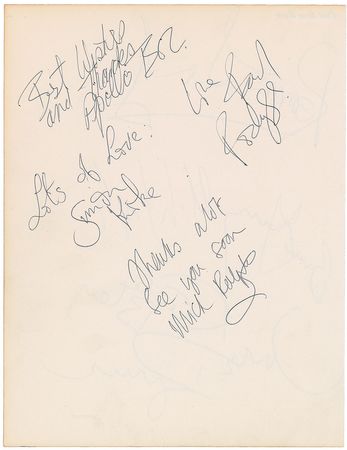 Best Wishes
and thanks
Boz.
Love Paul
Rodgers.
Lots of Love:
Simon
Kirke
Thanks alot
See you soon
Mick Ralphs